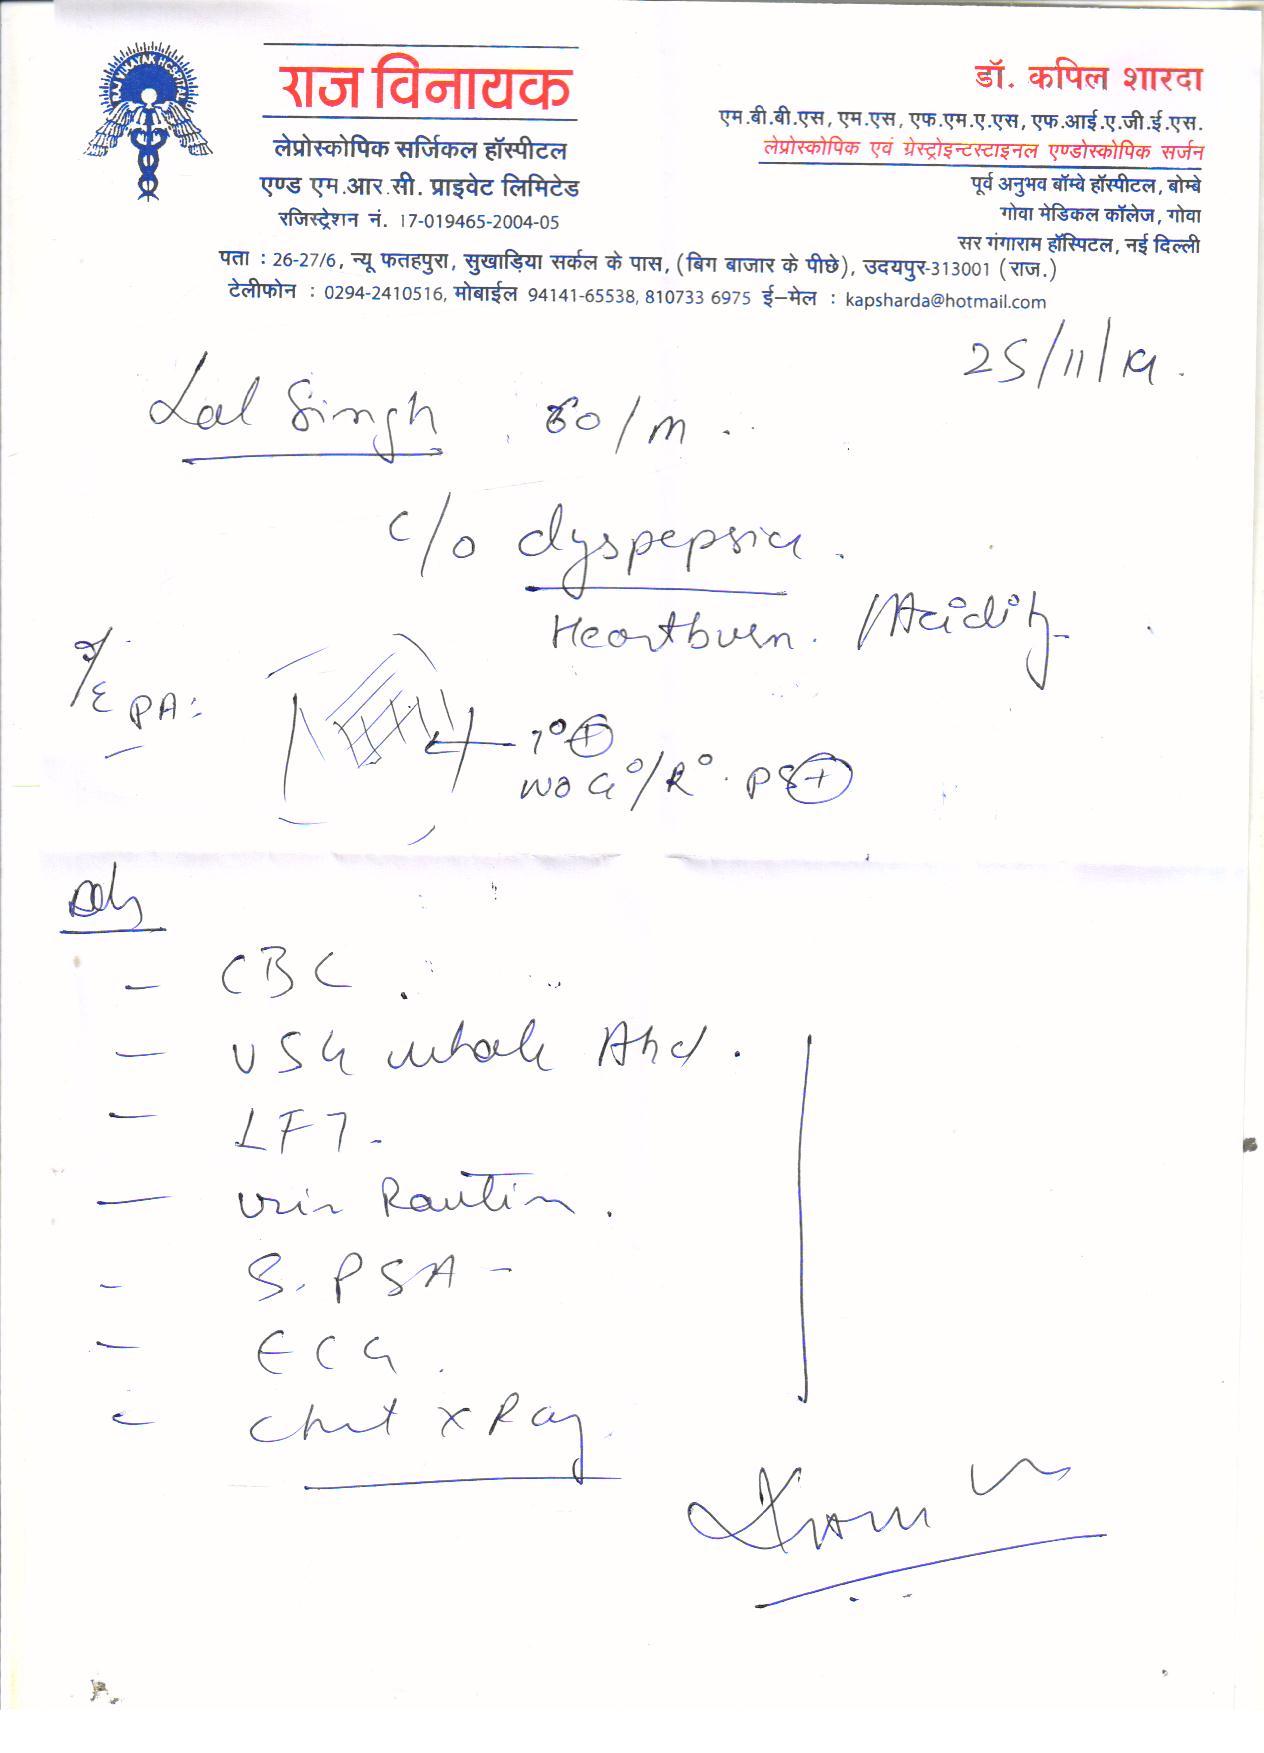 RAJ VINAYAK HOSPITAL
राज विनायक
लेप्रोस्कोपिक सर्जिकल हॉस्पीटल
एण्ड एम.आर.सी. प्राइवेट लिमिटेड
रजिस्ट्रेशन नं. 17-019465-2004-05
डॉ. कपिल शारदा
एम.बी.बी.एस, एम.एस, एफ.एम.ए.एस, एफ.आई.ए.जी.ई.एस.
लेप्रोस्कोपिक एवं ग्रेस्ट्रोइन्टस्टाइनल एण्डोस्कोपिक सर्जन
पूर्व अनुभव बॉम्बे हॉस्पीटल, बोम्बे
गोवा मेडिकल कॉलेज, गोवा
सर गंगाराम हॉस्पिटल, नई दिल्ली
पता : 26-27/6, न्यू फतहपुरा, सुखाड़िया सर्कल के पास, (बिग बाजार के पीछे), उदयपुर-313001 (राज.)
टेलीफोन : 0294-2410516, मोबाईल 94141-65538, 810733 6975 ई-मेल : kapsharda@hotmail.com
25/11/19.
Lal Singh 60/m
c/o dyspepsia.
Heartburn. /Acidity
O/E PA:
T° +
NO G°/R°. PS +
Adv
- CBC.
- USG whole Abd.
- LFT -
- Urin Routin.
- S. PSA -
- ECG.
- Chest X Ray